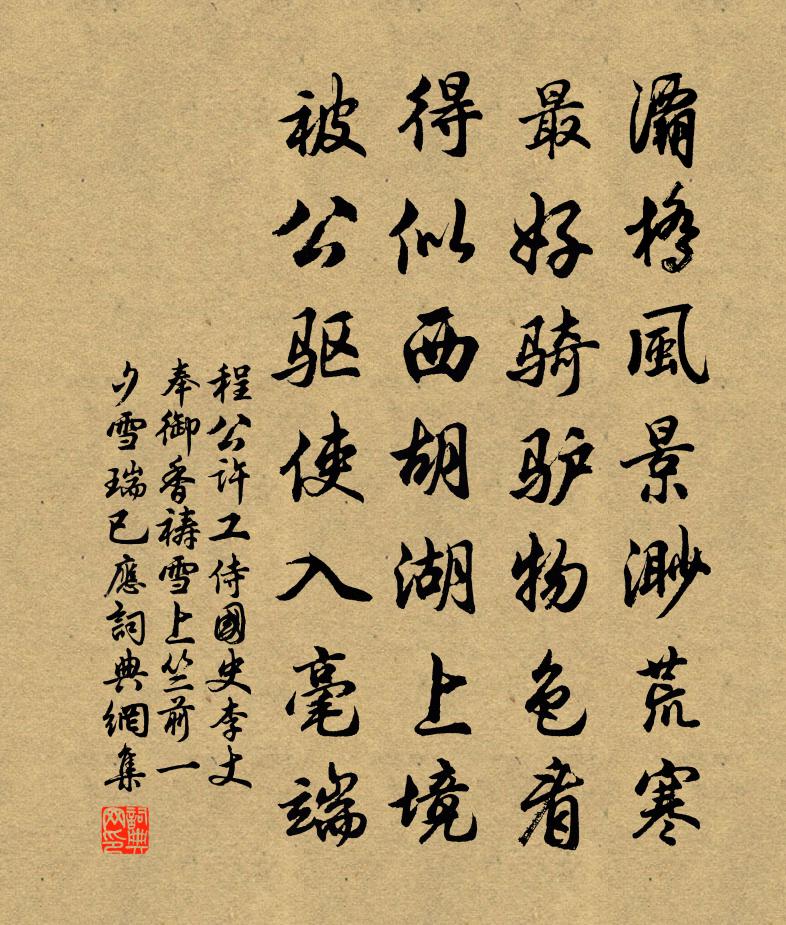 灞橋風景渺荒寒
最好骑驴物色看
得似西胡湖上境
被公驱使入毫端
程公許工侍國史李丈
奉御香禱雪上竺前一
夕雪瑞已應詞典網集
詞典網印